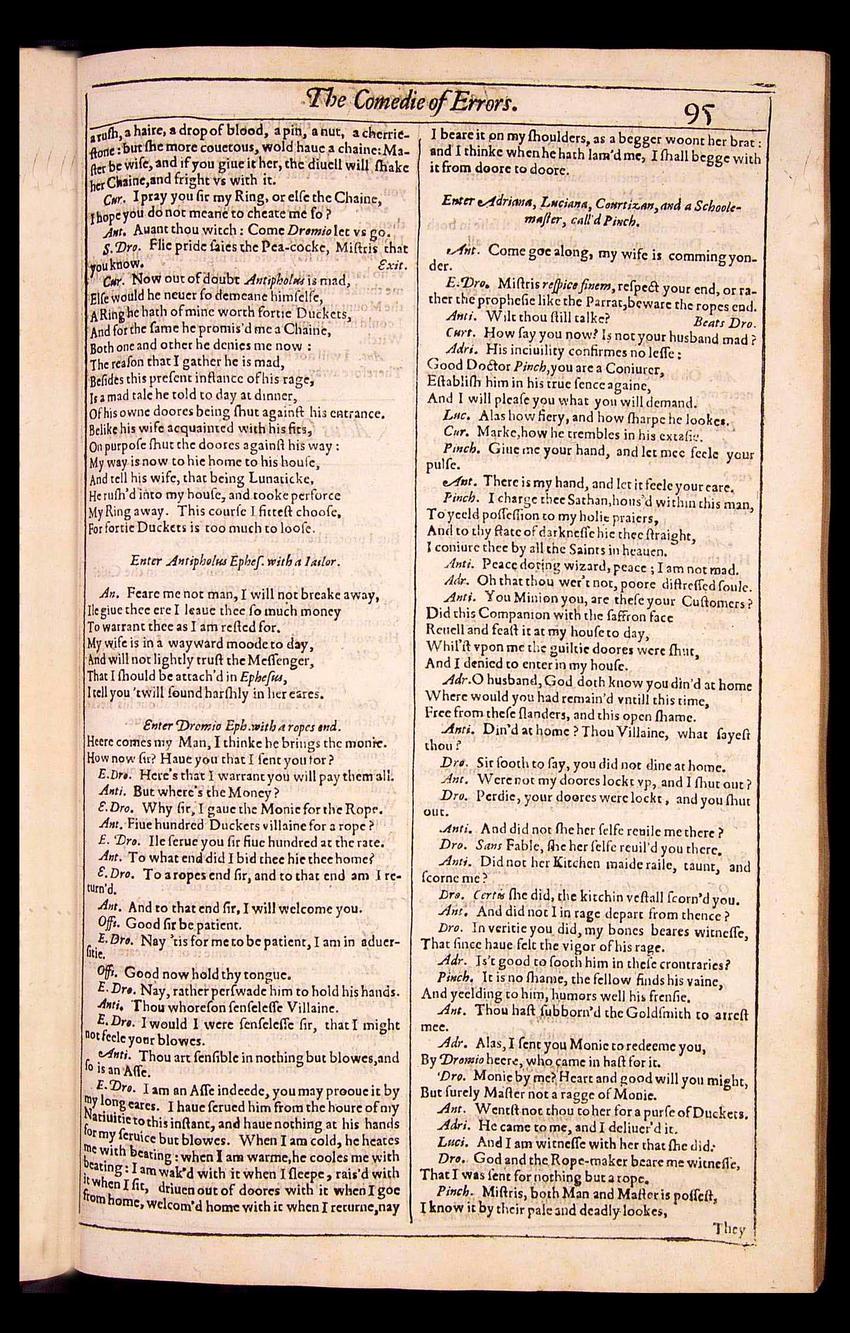 The Comedie of Errors.
95
a ruſh, a haire, a drop of blood, a pin, a nut, a cherrie-
ſtone: but ſhe more couetous, wold haue a chaine: Ma-
ſter be wiſe, and if you giue it her, the diuell will ſhake
her Chaine, and fright vs with it.
Cur. I pray you ſir my Ring, or elſe the Chaine,
I hope you do not meane to cheate me ſo?
Ant. Auant thou witch: Come Dromio let vs go.
S. Dro. Flie pride ſaies the Pea-cocke, Miſtris that
you know. Exit.
Cur. Now out of doubt Antipholus is mad,
Elſe would he neuer ſo demeane himſelfe,
A Ring he hath of mine worth fortie Duckets,
And for the ſame he promis'd me a Chaine,
Both one and other he denies me now:
The reaſon that I gather he is mad,
Beſides this preſent inſtance of his rage,
Is a mad tale he told to day at dinner,
Of his owne doores being ſhut againſt his entrance.
Belike his wife acquainted with his fits,
On purpoſe ſhut the doores againſt his way:
My way is now to hie home to his houſe,
And tell his wife, that being Lunaticke,
He ruſh'd into my houſe, and tooke perforce
My Ring away. This courſe I fitteſt chooſe,
For fortie Duckets is too much to looſe.
Enter Antipholus Epheſ. with a Iailor.
An. Feare me not man, I will not breake away,
Ile giue thee ere I leaue thee ſo much money
To warrant thee as I am reſted for.
My wife is in a wayward moode to day,
And will not lightly truſt the Meſſenger,
That I ſhould be attach'd in Epheſus,
I tell you 'twill ſound harſhly in her eares.
Enter Dromio Eph. with a ropes end.
Heere comes my Man, I thinke he brings the monie.
How now ſir? Haue you that I ſent you for?
E.Dro. Here's that I warrant you will pay them all.
Anti. But where's the Money?
E.Dro. Why ſir, I gaue the Monie for the Rope.
Ant. Fiue hundred Duckets villaine for a rope?
E. Dro. Ile ſerue you ſir fiue hundred at the rate.
Ant. To what end did I bid thee hie thee home?
E.Dro. To a ropes end ſir, and to that end am I re-
turn'd.
Ant. And to that end ſir, I will welcome you.
Offi. Good ſir be patient.
E.Dro. Nay 'tis for me to be patient, I am in aduer-
ſitie.
Offi. Good now hold thy tongue.
E.Dro. Nay, rather perſwade him to hold his hands.
Anti. Thou whoreſon ſenſeleſſe Villaine.
E.Dro. I would I were ſenſeleſſe ſir, that I might
not feele your blowes.
Anti. Thou art ſenſible in nothing but blowes, and
ſo is an Aſſe.
E.Dro. I am an Aſſe indeede, you may prooue it by
my long eares. I haue ſerued him from the houre of my
Natiuitie to this inſtant, and haue nothing at his hands
for my ſeruice but blowes. When I am cold, he heates
me with beating: when I am warme, he cooles me with
beating: I am wak'd with it when I ſleepe, rais'd with
it when I ſit, driuen out of doores with it when I goe
from home, welcom'd home with it when I returne, nay
I beare it on my ſhoulders, as a begger woont her brat:
and I thinke when he hath lam'd me, I ſhall begge with
it from doore to doore.
Enter Adriana, Luciana, Courtizan, and a Schoole-
maſter, call'd Pinch.
Ant. Come goe along, my wife is comming yon-
der.
E.Dro. Miſtris reſpice finem, reſpect your end, or ra-
ther the propheſie like the Parrat, beware the ropes end.
Anti. Wilt thou ſtill talke? Beats Dro.
Curt. How ſay you now? Is not your husband mad?
Adri. His inciuility confirmes no leſſe:
Good Doctor Pinch, you are a Coniurer,
Eſtabliſh him in his true ſence againe,
And I will pleaſe you what you will demand.
Luc. Alas how fiery, and how ſharpe he lookes.
Cur. Marke, how he trembles in his extaſie.
Pinch. Giue me your hand, and let mee feele your
pulſe.
Ant. There is my hand, and let it feele your eare.
Pinch. I charge thee Sathan, hous'd within this man,
To yeeld poſſeſſion to my holie praiers,
And to thy ſtate of darkneſſe hie thee ſtraight,
I coniure thee by all the Saints in heauen.
Anti. Peace doting wizard, peace; I am not mad.
Adr. Oh that thou wer't not, poore diſtreſſed ſoule.
Anti. You Minion you, are theſe your Cuſtomers?
Did this Companion with the ſaffron face
Reuell and feaſt it at my houſe to day,
Whil'ſt vpon me the guiltie doores were ſhut,
And I denied to enter in my houſe.
Adr. O husband, God doth know you din'd at home
Where would you had remain'd vntill this time,
Free from theſe ſlanders, and this open ſhame.
Anti. Din'd at home? Thou Villaine, what ſayeſt
thou?
Dro. Sir ſooth to ſay, you did not dine at home.
Ant. Were not my doores lockt vp, and I ſhut out?
Dro. Perdie, your doores were lockt, and you ſhut
out.
Anti. And did not ſhe her ſelfe reuile me there?
Dro. Sans Fable, ſhe her ſelfe reuil'd you there.
Anti. Did not her Kitchen maide raile, taunt, and
ſcorne me?
Dro. Certis ſhe did, the kitchin veſtall ſcorn'd you.
Ant. And did not I in rage depart from thence?
Dro. In veritie you did, my bones beares witneſſe,
That ſince haue felt the vigor of his rage.
Adr. Is't good to ſooth him in theſe crontraries?
Pinch. It is no ſhame, the fellow finds his vaine,
And yeelding to him, humors well his frenſie.
Ant. Thou haſt ſubborn'd the Goldſmith to arreſt
mee.
Adr. Alas, I ſent you Monie to redeeme you,
By Dromio heere, who came in haſt for it.
Dro. Monie by me? Heart and good will you might,
But ſurely Maſter not a ragge of Monie.
Ant. Wentſt not thou to her for a purſe of Duckets.
Adri. He came to me, and I deliuer'd it.
Luci. And I am witneſſe with her that ſhe did:
Dro. God and the Rope-maker beare me witneſſe,
That I was ſent for nothing but a rope.
Pinch. Miſtris, both Man and Maſter is poſſeſt,
I know it by their pale and deadly lookes,
They